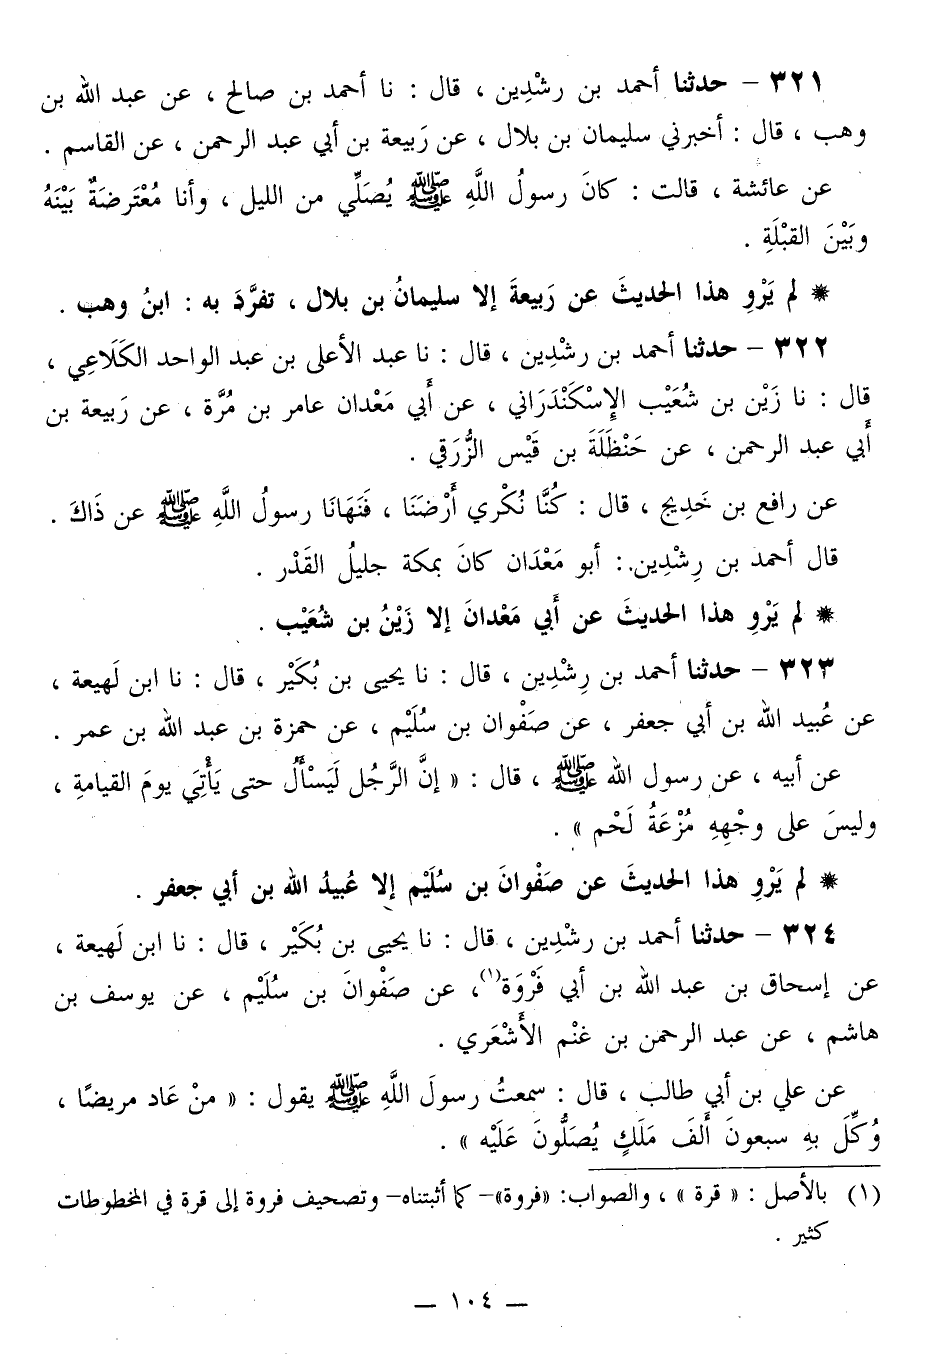 ٣٢١ - حدثنا أحمد بن رشْدِين ، قال : نا أحمد بن صالح ، عن عبد الله بن
وهب ، قال : أخبرني سليمان بن بلال ، عن رَبيعة بن أبي عبد الرحمن ، عن القاسم .
عن عائشة ، قالت : كانَ رسولُ اللَّهِ ﷺ يُصَلِّي من الليل ، وأنا مُعْتَرضَةٌ بَيْنَهُ
وبَيْنَ القبْلَةِ .
* لم يَرْوِ هذا الحديثَ عن رَبيعةَ إلا سليمانُ بن بلال ، تفرَّدَ به : ابنُ وهب .
٣٢٢ - حدثنا أحمد بن رشْدِين ، قال : نا عبد الأعلى بن عبد الواحد الكَلَاعِي ،
قال : نا زَيْن بن شُعَيْب الإِسْكَنْدَرَاني ، عن أَبي مَعْدان عامر بن مُرَّة ، عن رَبيعة بن
أَبي عبد الرحمن ، عن حَنْظَلَةَ بن قَيْس الزُّرَقي .
عن رافع بن خَدِيج ، قال : كُنَّا نُكْري أَرْضَنَا ، فَنَهَانَا رسولُ اللَّهِ ﷺ عن ذَاكَ .
قال أحمد بن رِشْدِين : أبو مَعْدَان كانَ بمكة جليلُ القَدْر .
* لم يَرْوِ هذا الحديثَ عن أَبي مَعْدانَ إلا زَيْنُ بن شُعَيْب .
٣٢٣ - حدثنا أحمد بن رِشْدِين ، قال : نا يحيى بن بُكَيْر ، قال : نا ابن لَهيعة ،
عن عُبيد الله بن أبي جعفر ، عن صَفْوان بن سُلَيْم ، عن حمزة بن عبد الله بن عمر .
عن أبيه ، عن رسول الله ﷺ ، قال : « إنَّ الرَّجُل لَيَسْأَلُ حتى يَأْتِيَ يومَ القيامةِ ،
وليسَ على وجْهِهِ مُزْعَةُ لَحْم » .
* لم يَرْوِ هذا الحديثَ عن صَفْوانَ بن سُلَيْم إلا عُبيدُ الله بن أبي جعفر .
٣٢٤ - حدثنا أحمد بن رشْدِين ، قال : نا يحيى بن بُكَيْر ، قال : نا ابن لَهيعة ،
عن إسحاق بن عبد الله بن أبي فَرْوَة(١)، عن صَفْوانَ بن سُلَيْم ، عن يوسف بن
هاشم ، عن عبد الرحمن بن غنْم الأَشْعَري .
عن علي بن أبي طالب ، قال : سمعتُ رسولَ اللَّهِ ﷺ يقول : « منْ عَاد مريضًا ،
وُكِّلَ بهِ سبعونَ أَلفَ مَلَكٍ يُصَلُّونَ عَلَيْه » .
(١) بالأصل : « قرة » ، والصواب: «فروة»- كما أثبتناه- وتصحيف فروة إلى قرة في المخطوطات
كثير .
— ١٠٤ —